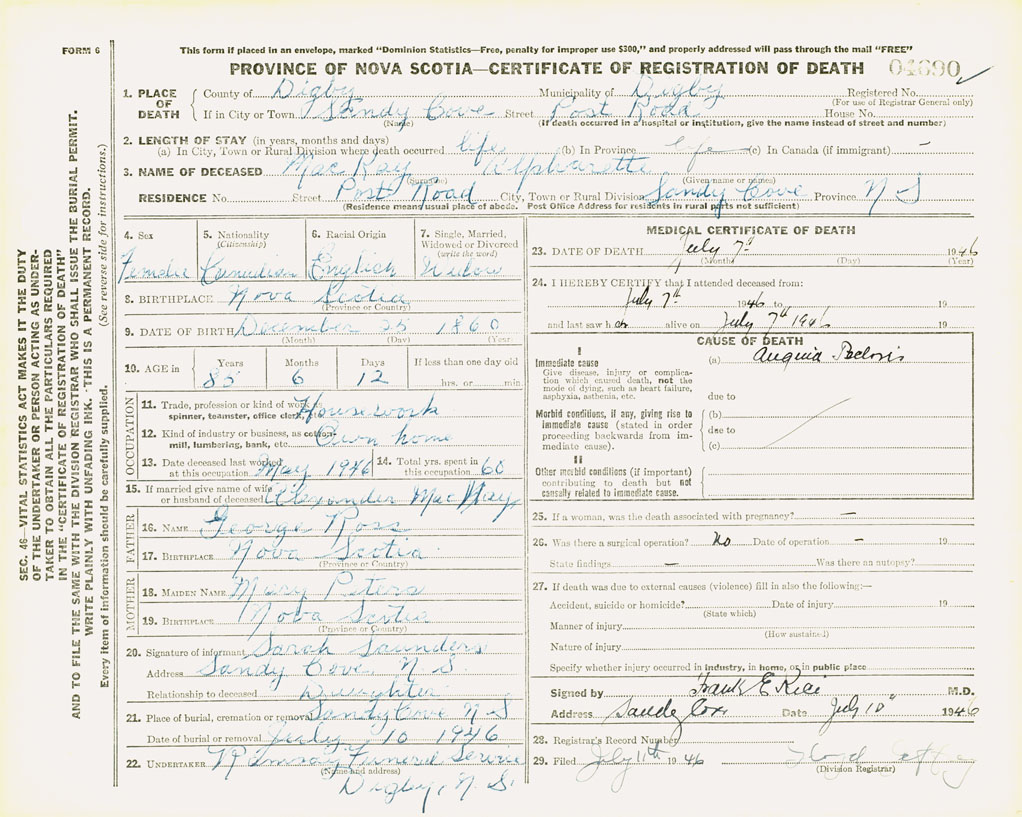 FORM 6
This form if placed in an envelope, marked "Dominion Statistics—Free, penalty for improper use $300," and properly addressed will pass through the mail "FREE"
PROVINCE OF NOVA SCOTIA—CERTIFICATE OF REGISTRATION OF DEATH 04690
1. PLACE OF DEATH
County of Digby Municipality of Digby Registered No.
(For use of Registrar General only)
If in City or Town Sandy Cove Street Post Road House No.
(Name) (If death occurred in a hospital or institution, give the name instead of street and number)
2. LENGTH OF STAY (in years, months and days)
(a) In City, Town or Rural Division where death occurred life (b) In Province life (c) In Canada (if immigrant) —
3. NAME OF DECEASED MacKay Alpharetta
(Surname) (Given name or names)
RESIDENCE No. Street Post Road City, Town or Rural Division Sandy Cove Province N S
(Residence means usual place of abode. Post Office Address for residents in rural parts not sufficient)
4. Sex 5. Nationality (Citizenship) 6. Racial Origin 7. Single, Married, Widowed or Divorced (write the word)
Female Canadian English Widow
8. BIRTHPLACE Nova Scotia
(Province or Country)
9. DATE OF BIRTH December 25 1860
(Month) (Day) (Year)
10. AGE in Years Months Days If less than one day old
85 6 12 hrs. or min.
OCCUPATION
11. Trade, profession or kind of work, as spinner, teamster, office clerk, etc. Housework
12. Kind of industry or business, as cotton-mill, lumbering, bank, etc. Own home
13. Date deceased last worked at this occupation May 1946 14. Total yrs. spent in this occupation 60
15. If married give name of wife or husband of deceased Alexander MacKay
FATHER
16. NAME George Ross
17. BIRTHPLACE Nova Scotia
(Province or Country)
MOTHER
18. MAIDEN NAME Mary Peters
19. BIRTHPLACE Nova Scotia
(Province or Country)
20. Signature of informant Sarah Saunders
Address Sandy Cove N. S.
Relationship to deceased Daughter
21. Place of burial, cremation or removal Sandy Cove N S
Date of burial or removal July 10 1946
22. UNDERTAKER Funeral Service
(Name and address)
Digby, N. S.
MEDICAL CERTIFICATE OF DEATH
23. DATE OF DEATH July 7th 1946
(Month) (Day) (Year)
24. I HEREBY CERTIFY that I attended deceased from:
July 7th 1946 to 19
and last saw her alive on July 7th 1946 19
CAUSE OF DEATH
I
Immediate cause (a) Angina Pectoris
Give disease, injury or complication which caused death, not the mode of dying, such as heart failure, asphyxia, asthenia, etc.
due to
Morbid conditions, if any, giving rise to immediate cause (stated in order proceeding backwards from immediate cause).
(b)
due to
(c)
II
Other morbid conditions (if important) contributing to death but not causally related to immediate cause.
25. If a woman, was the death associated with pregnancy? —
26. Was there a surgical operation? No Date of operation — 19
State findings — Was there an autopsy?
27. If death was due to external causes (violence) fill in also the following:—
Accident, suicide or homicide? Date of injury 19
(State which)
Manner of injury
(How sustained)
Nature of injury
Specify whether injury occurred in industry, in home, or in public place
Signed by Frank E Rice M.D.
Address Sandy Cove Date July 10th 1946
28. Registrar's Record Number
29. Filed July 11th 1946
(Division Registrar)
SEC. 46—VITAL STATISTICS ACT MAKES IT THE DUTY
OF THE UNDERTAKER OR PERSON ACTING AS UNDER-
TAKER TO OBTAIN ALL THE PARTICULARS REQUIRED
IN THE "CERTIFICATE OF REGISTRATION OF DEATH"
AND TO FILE THE SAME WITH THE DIVISION REGISTRAR WHO SHALL ISSUE THE BURIAL PERMIT.
WRITE PLAINLY WITH UNFADING INK. THIS IS A PERMANENT RECORD.
Every item of information should be carefully supplied. (See reverse side for instructions.)